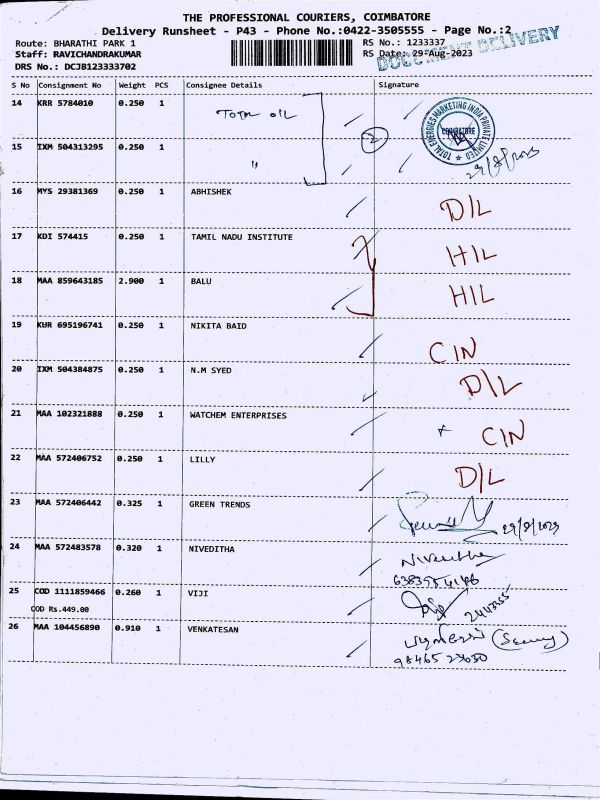 THE PROFESSIONAL COURIERS, COIMBATORE
Delivery Runsheet - P43 - Phone No.:0422-3505555 - Page No.:2
Route: BHARATHI PARK 1 RS No.: 1233337
Staff: RAVICHANDRAKUMAR RS Date: 29-Aug-2023
DOCUMENT DELIVERY
DRS No.: DCJB123333702
S No Consignment No Weight PCS Consignee Details Signature
14 KRR 5784010 0.250 1 TOTAL OIL
TOTAL ENERGIES MARKETING INDIA PRIVATE LIMITED
COIMBATORE
2
15 IXM 504313295 0.250 1 "
29/8/2023
16 MYS 29381369 0.250 1 ABHISHEK D/L
17 KDI 574415 0.250 1 TAMIL NADU INSTITUTE H/L
18 MAA 859643185 2.900 1 BALU H/L
19 KUR 695196741 0.250 1 NIKITA BAID C/N
20 IXM 504384875 0.250 1 N.M SYED D/L
21 MAA 102321888 0.250 1 WATCHEM ENTERPRISES C/N
22 MAA 572406752 0.250 1 LILLY D/L
23 MAA 572406442 0.325 1 GREEN TRENDS 29/8/2023
24 MAA 572483578 0.320 1 NIVEDITHA Niveditha
25 COD 1111859466 0.260 1 VIJI
COD Rs.449.00
26 MAA 104456890 0.910 1 VENKATESAN